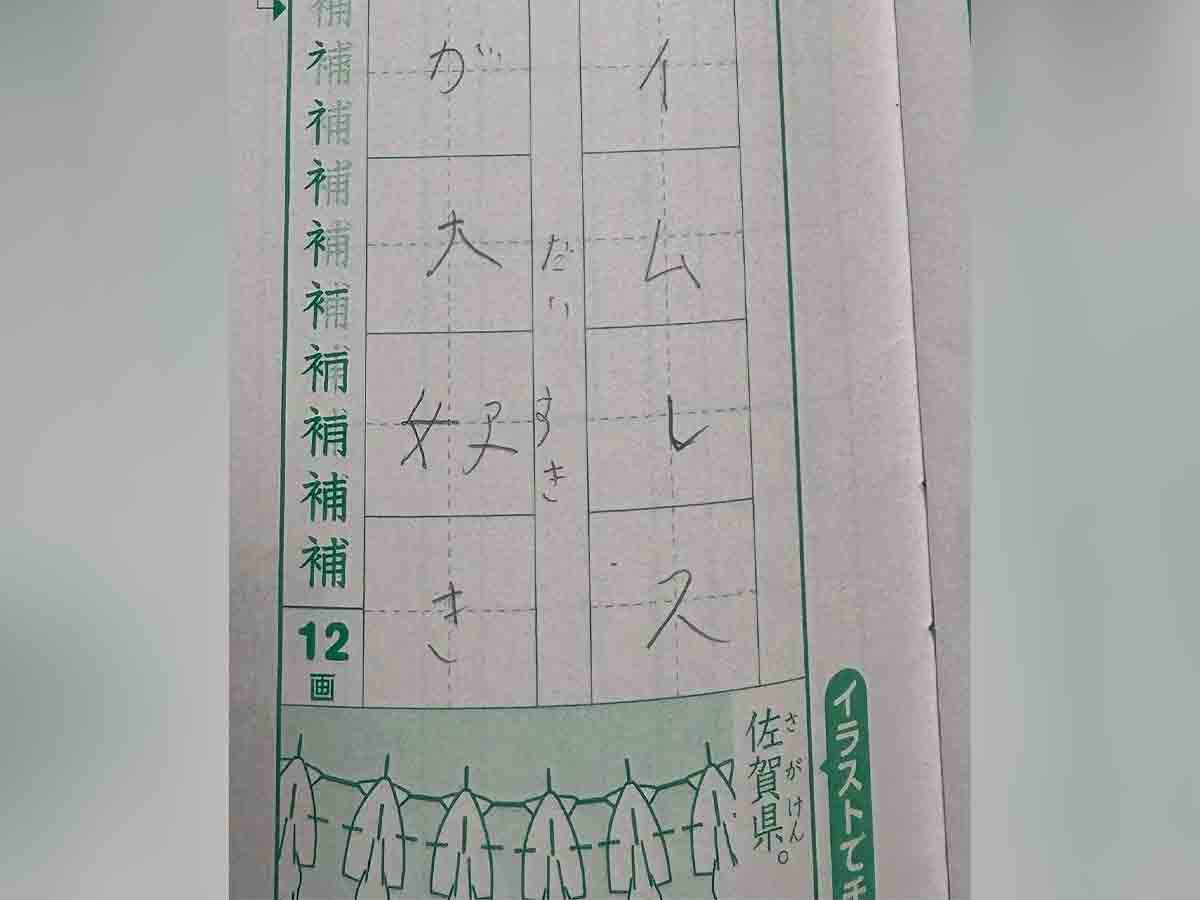 イラストで
イムレス
だいすき
が大好き
補補補補補補補補補補
12画
さがけん
佐賀県。